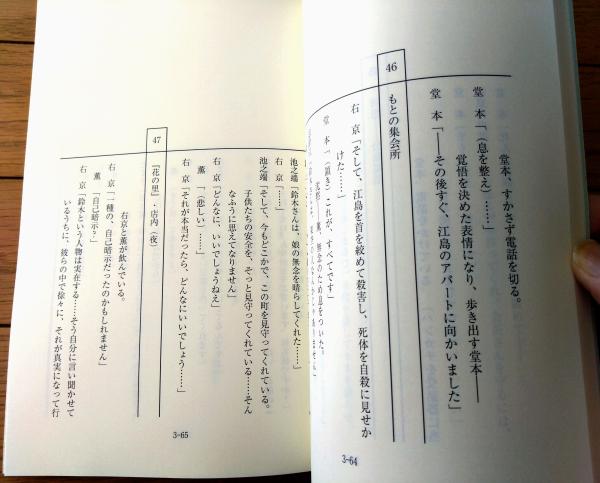 堂本、すかさず電話を切る。
堂 本「（息を整え）……」
覚悟を決めた表情になり、歩き出す堂本――
堂 本「――その後すぐ、江島のアパートに向かいました」
46
もとの集会所
右 京「そして、江島を首を絞めて殺害し、死体を自殺に見せか
けた……」
堂 本「（頷き）これが、すべてです」
薫、無念のため息をついた。
3-64
池之端「鈴木さんは、娘の無念を晴らしてくれた……」
右 京「……」
池之端「そして、今もどこかで、この町を見守ってくれている。
子供たちの安全を、そっと見守ってくれている……そん
なふうに思えてなりません」
右 京「どんなに、いいでしょうねえ」
薫 「（悲しい）……」
右 京「それが本当だったら、どんなにいいでしょう……」
47
『花の里』・店内（夜）
右京と薫が飲んでいる。
右 京「一種の、自己暗示だったのかもしれません」
薫 「自己暗示？」
右 京「鈴木という人物は実在する……そう自分に言い聞かせて
いるうちに、彼らの中で徐々に、それが真実になって行
3-65